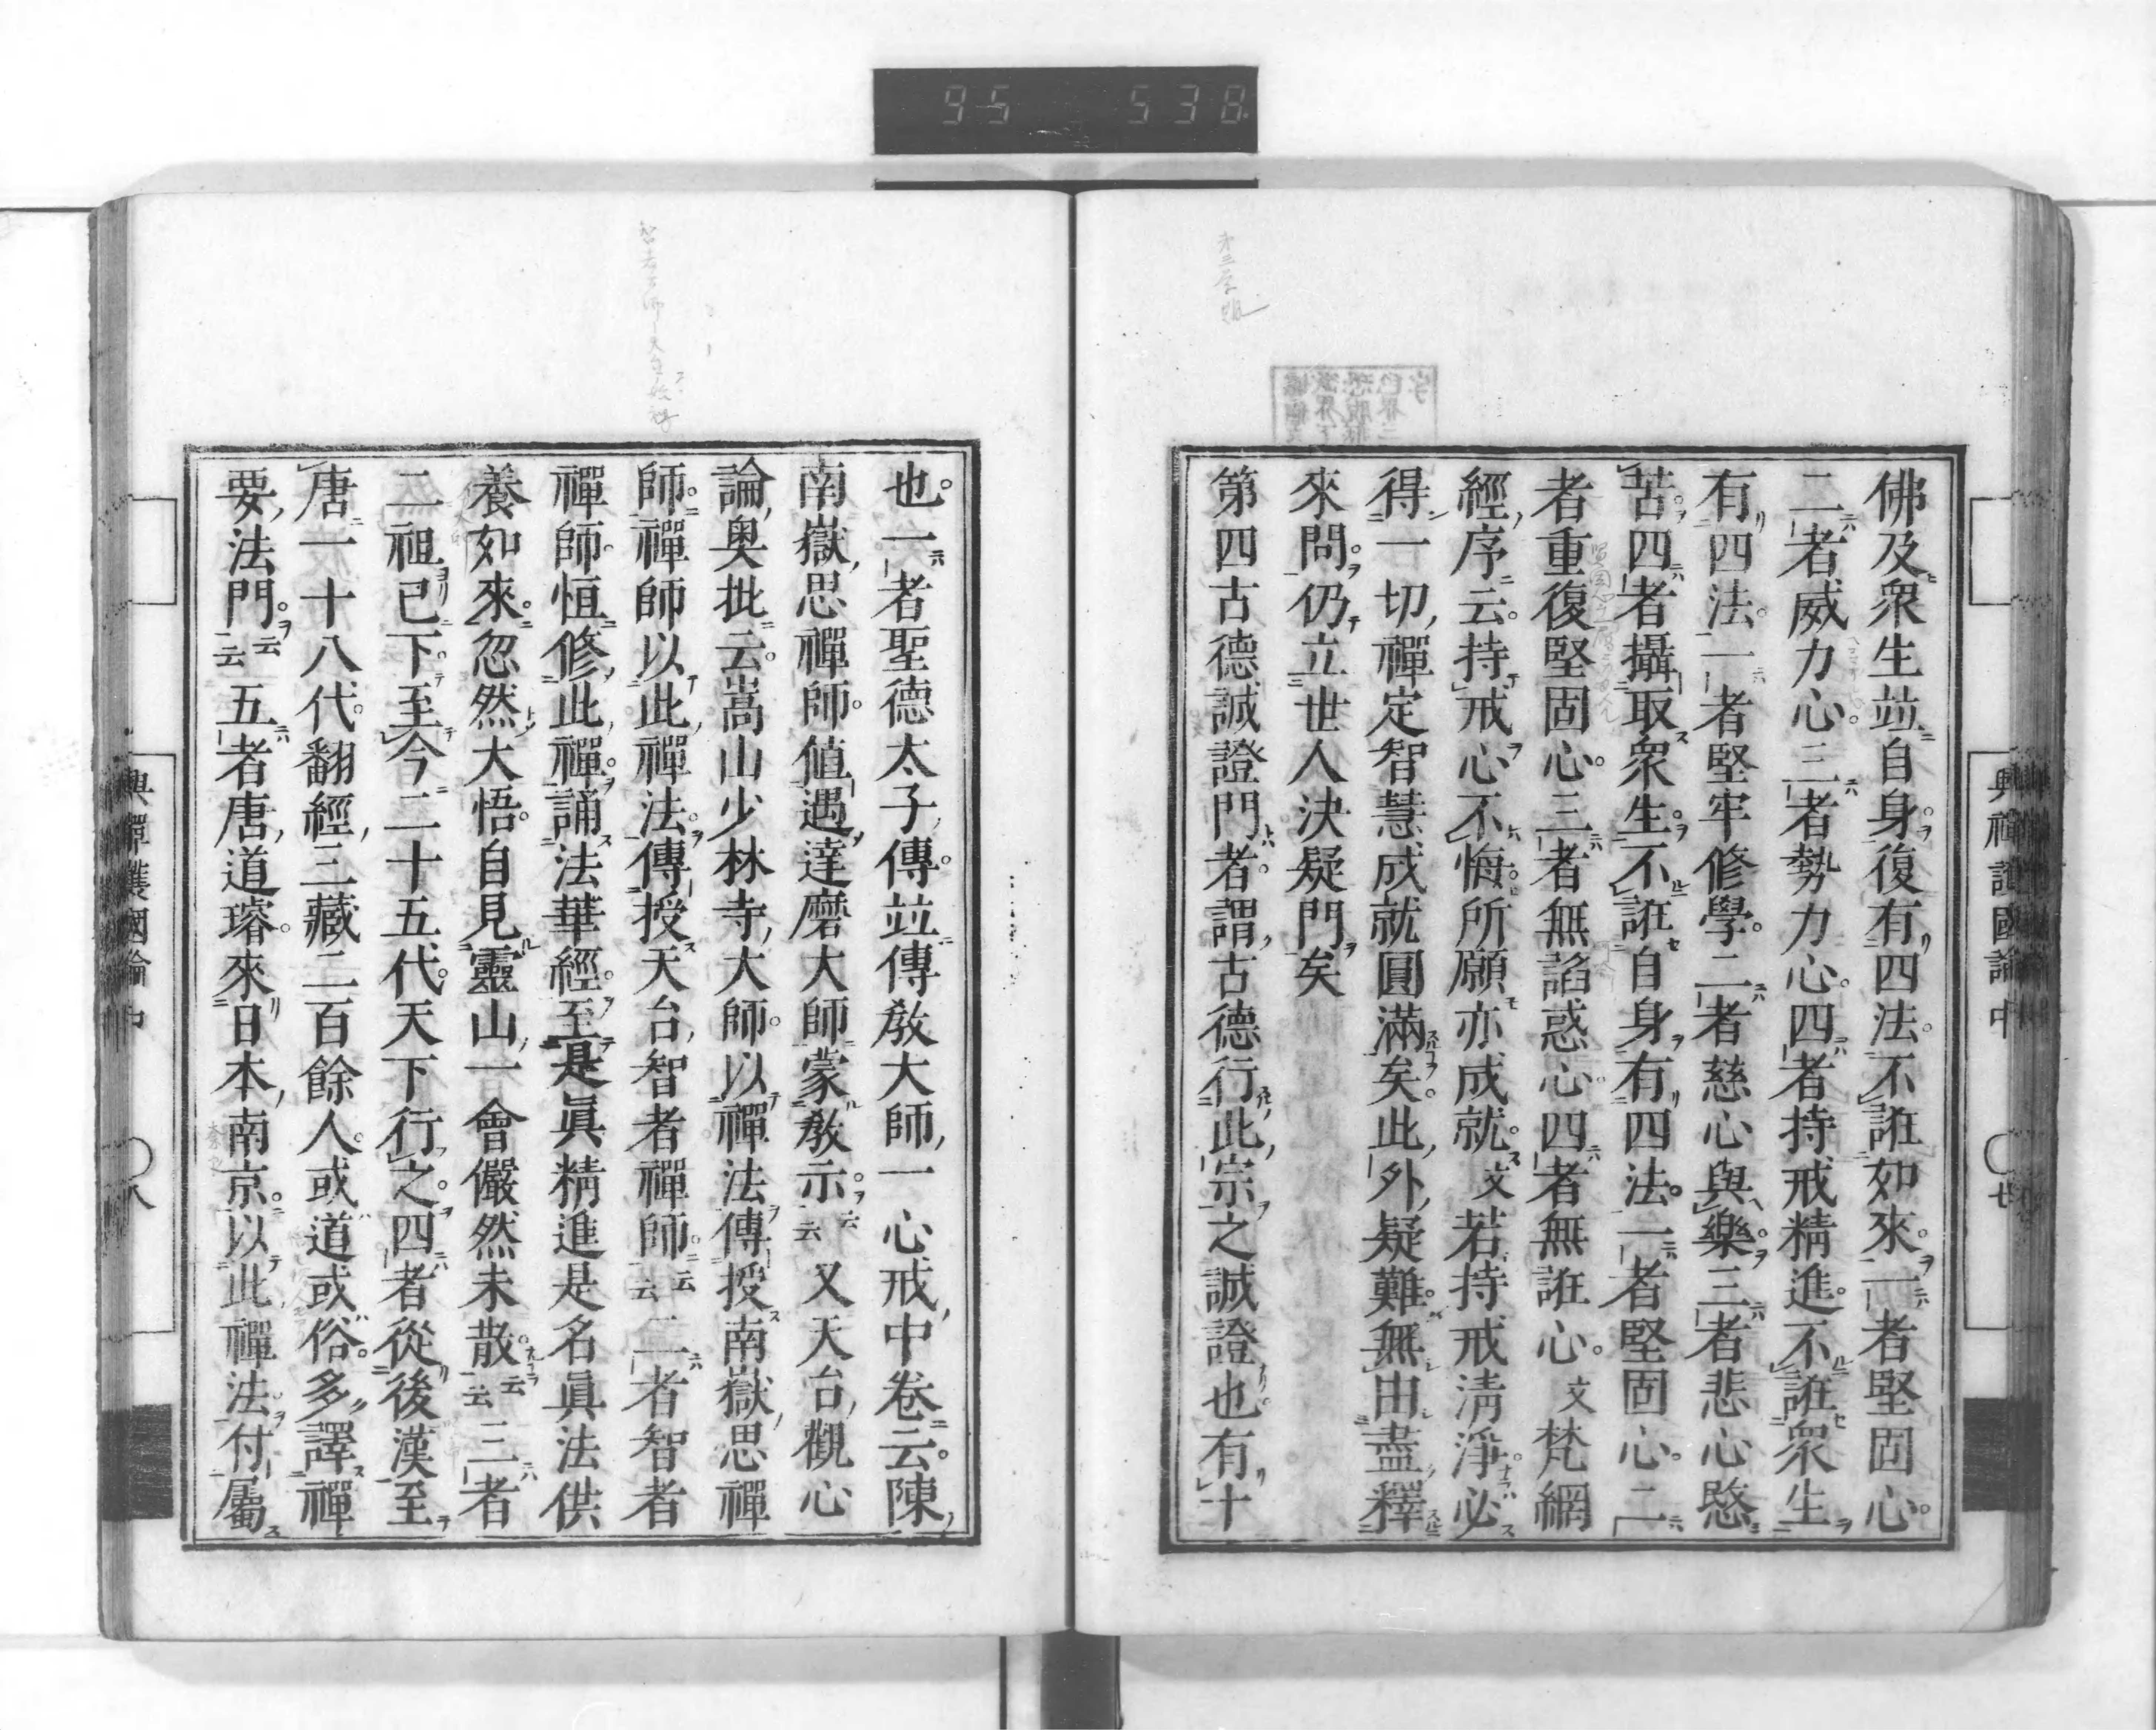 95 538
佛及衆生竝自身復有四法不誑如來一者堅固心
二者威力心三者勢力心四者持戒精進不誑衆生
有四法一者堅牢修學二者慈心與樂三者悲心愍
苦四者攝取衆生不誑自身有四法一者堅固心二
者重復堅固心三者無諂惑心四者無誑心文梵網
經序云持戒心不悔所願亦成就文若持戒淸淨必
得一切禪定智慧成就圓滿矣此外疑難無由盡釋
來問仍立世人決疑門矣
第四古德誠證門者謂古德行此宗之誠證也有十
也一者聖德太子傳竝傳敎大師一心戒中卷云陳
南嶽思禪師値遇達磨大師蒙敎示云云又天台觀心
論奥批云嵩山少林寺大師以禪法傳授南嶽思禪
師禪師以此禪法傳授天台智者禪師云云二者智者
禪師恒修此禪誦法華經至是眞精進是名眞法供
養如來忽然大悟自見靈山一會儼然未散云云三者
二祖已下至今二十五代天下行之四者從後漢至
唐一十八代翻經三藏二百餘人或道或俗多譯禪
要法門云云五者唐道璿來日本南京以此禪法付屬
興禪護國論中 八